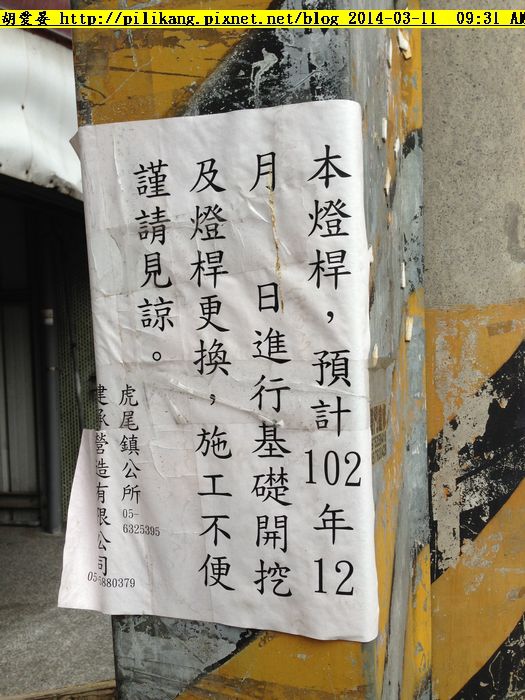 胡霙晏 http://pilikang.pixnet.net/blog 2014-03-11 09:31 AM
本燈桿，預計102年12
月 日進行基礎開挖
及燈桿更換，施工不便
謹請見諒。
虎尾鎮公所 05-6325395
建承營造有限公司 05-6880379